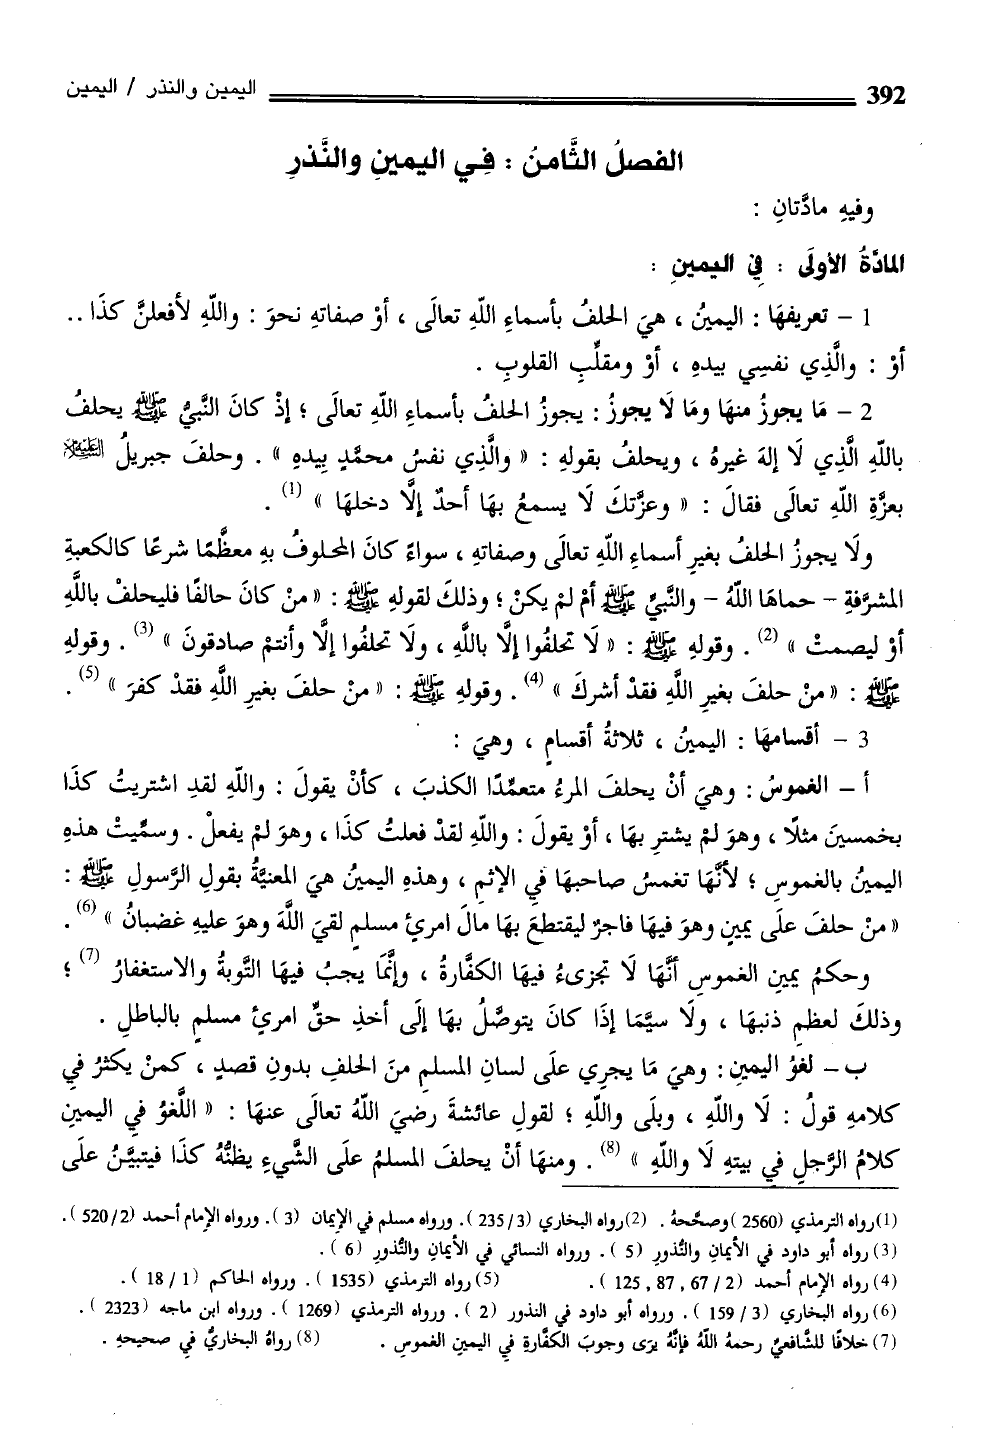 392 اليمين والنذر / اليمين
الفصلُ الثَّامنُ : فِي اليمينِ والنَّذرِ
وفيهِ مادَّتانِ :
المادَّةُ الأولَى : فِي اليمينِ :
1 – تعريفهَا : اليمينُ ، هيَ الحلفُ بأسماءِ اللّهِ تعالَى ، أوْ صفاتهِ نحوَ : واللّهِ لأفعلنَّ كذَا ..
أوْ : والَّذِي نفسِي بيدهِ ، أوْ ومقلِّبِ القلوبِ .
2 – مَا يجوزُ منهَا ومَا لَا يجوزُ : يجوزُ الحلفُ بأسماءِ اللّهِ تعالَى ؛ إذْ كانَ النَّبيُّ ﷺ يحلفُ
باللّهِ الَّذِي لَا إلهَ غيرهُ ، ويحلفُ بقولهِ : « والَّذِي نفسُ محمَّدٍ بيدهِ » . وحلفَ جبريلُ عليه السلام
بعزَّةِ اللّهِ تعالَى فقالَ : « وعزَّتكَ لَا يسمعُ بهَا أحدٌ إلَّا دخلهَا » (1) .
ولَا يجوزُ الحلفُ بغيرِ أسماءِ اللّهِ تعالَى وصفاتهِ ، سواءً كانَ المحلوفُ بهِ معظَّمًا شرعًا كالكعبةِ
المشرَّفةِ – حماهَا اللّهُ – والنَّبيِّ ﷺ أمْ لمْ يكنْ ؛ وذلكَ لقولهِ ﷺ : « منْ كانَ حالفًا فليحلفْ باللَّهِ
أوْ ليصمتْ » (2) . وقولهِ ﷺ : « لَا تحلفُوا إلَّا باللَّهِ ، ولَا تحلفُوا إلَّا وأنتمْ صادقونَ » (3) . وقولهِ
ﷺ : « منْ حلفَ بغيرِ اللَّهِ فقدْ أشركَ » (4) . وقولهِ ﷺ : « منْ حلفَ بغيرِ اللَّهِ فقدْ كفرَ » (5) .
3 – أقسامهَا : اليمينُ ، ثلاثةُ أقسامٍ ، وهيَ :
أ – الغموسُ : وهيَ أنْ يحلفَ المرءُ متعمِّدًا الكذبَ ، كأنْ يقولَ : واللّهِ لقدِ اشتريتُ كذَا
بخمسينَ مثلًا ، وهوَ لمْ يشترِ بهَا ، أوْ يقولَ : واللّهِ لقدْ فعلتُ كذَا ، وهوَ لمْ يفعلْ . وسمِّيتْ هذهِ
اليمينُ بالغموسِ ؛ لأنَّهَا تغمسُ صاحبهَا فِي الإثمِ ، وهذهِ اليمينُ هيَ المعنيَّةُ بقولِ الرَّسولِ ﷺ :
« منْ حلفَ علَى يمينٍ وهوَ فيهَا فاجرٌ ليقتطعَ بهَا مالَ امرئٍ مسلمٍ لقيَ اللَّهَ وهوَ عليهِ غضبانُ » (6) .
وحكمُ يمينِ الغموسِ أنَّهَا لَا تجزىءُ فيهَا الكفَّارةُ ، وإنَّمَا يجبُ فيهَا التَّوبةُ والاستغفارُ (7) ؛
وذلكَ لعظمِ ذنبهَا ، ولَا سيَّمَا إذَا كانَ يتوصَّلُ بهَا إلَى أخذِ حقِّ امرئٍ مسلمٍ بالباطلِ .
ب – لغوُ اليمينِ : وهيَ مَا يجرِي علَى لسانِ المسلمِ منَ الحلفِ بدونِ قصدٍ ، كمنْ يكثرُ فِي
كلامهِ قولُ : لَا واللّهِ ، وبلَى واللّهِ ؛ لقولِ عائشةَ رضيَ اللّهُ تعالَى عنهَا : « اللَّغوُ فِي اليمينِ
كلامُ الرَّجلِ فِي بيتهِ لَا واللّهِ » (8) . ومنهَا أنْ يحلفَ المسلمُ علَى الشَّيءِ يظنُّهُ كذَا فيتبيَّنُ علَى
(1) رواه الترمذي (2560) وصحَّحهُ . (2) رواه البخاري (3/ 235). ورواه مسلم في الإيمان (3). ورواه الإمام أحمد (2/ 520).
(3) رواه أبو داود في الأيمانِ والنُّذورِ (5). ورواه النسائي في الأيمانِ والنُّذورِ (6).
(4) رواه الإمام أحمد (2 / 67 , 87 , 125). (5) رواه الترمذي (1535). ورواه الحاكم (1 / 18).
(6) رواه البخاري (3 / 159). ورواه أبو داود في النذور (2). ورواه الترمذي (1269). ورواه ابن ماجه (2323).
(7) خلافًا للشَّافعيِّ رحمهُ اللّهُ فإنَّهُ يرَى وجوبَ الكفَّارةِ فِي اليمينِ الغموسِ . (8) رواهُ البخاريُّ فِي صحيحهِ .